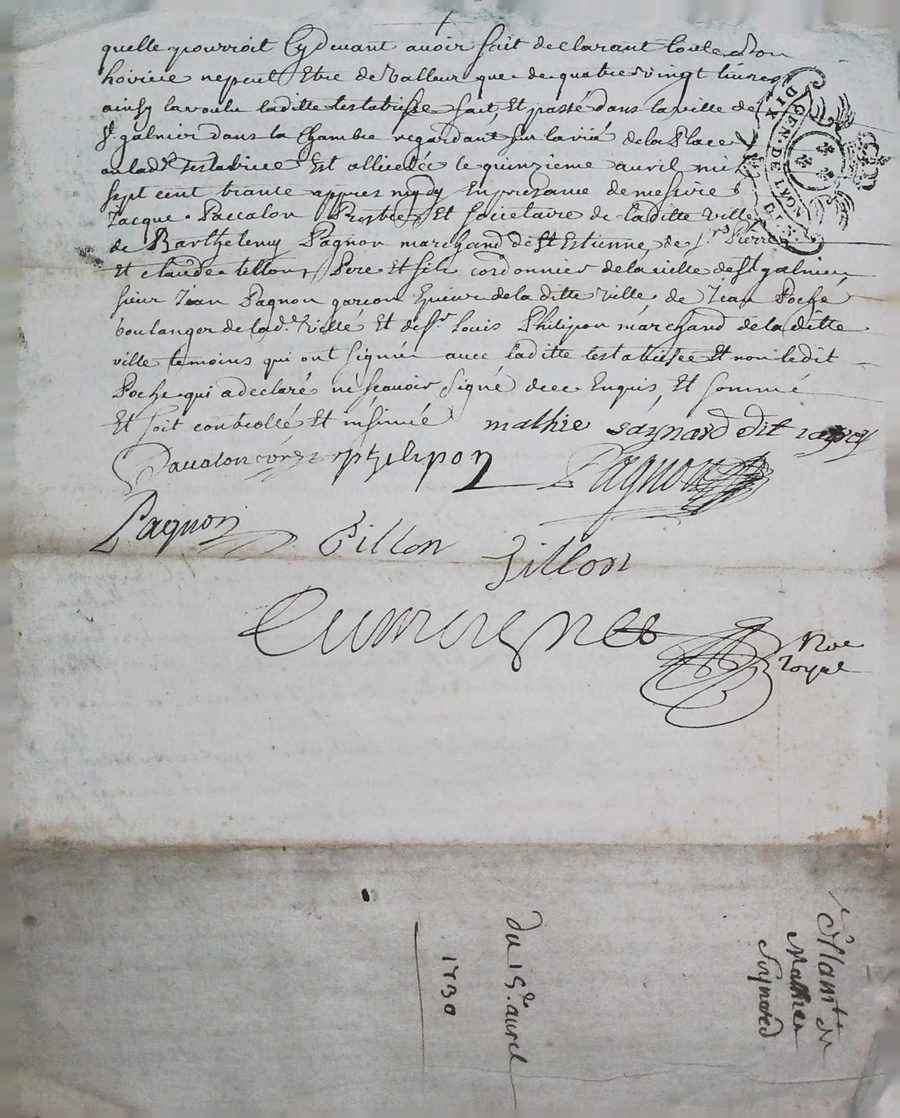 quelle pourroit Cydevant avoir fait declarant toute son
hoirie ne peut Etre de valleur que de quatre vingt livres
ainsy la voulu laditte testatrise fait, Et passé dans la ville de
St. galmier dans la Chambre regardant sur la de la Place
ou lad. testatrice Est allictée le quinzieme avril mil
sept cent trante appres midy En presance de messire
Jacque Paccalon Prestre Et societaire de laditte ville
de Barthelemy Pagnon marchand de St Etienne, de Sr. Pierre
Et claude tillon, Pere Et fils cordonnier de la ville de St galmier
sieur Jean Pagnon garçon de la ditte ville de Jean Poche
boulanger de lad. ville Et de Sr. Louis Philipon marchand de la ditte
ville temoins qui ont signée avec laditte testatrise Et non ledit
Poche qui a declaré ne sçavoir signé de ce Enquis, Et sommé
Et soit controllé Et insinué mathie saynard dit
Pacalon phelipon Pagnon
Pagnon Tillon Tillon
Nre
royal
GEN. DE LYON
DIX
du 15e. avril
1730
Mathie
Saynard